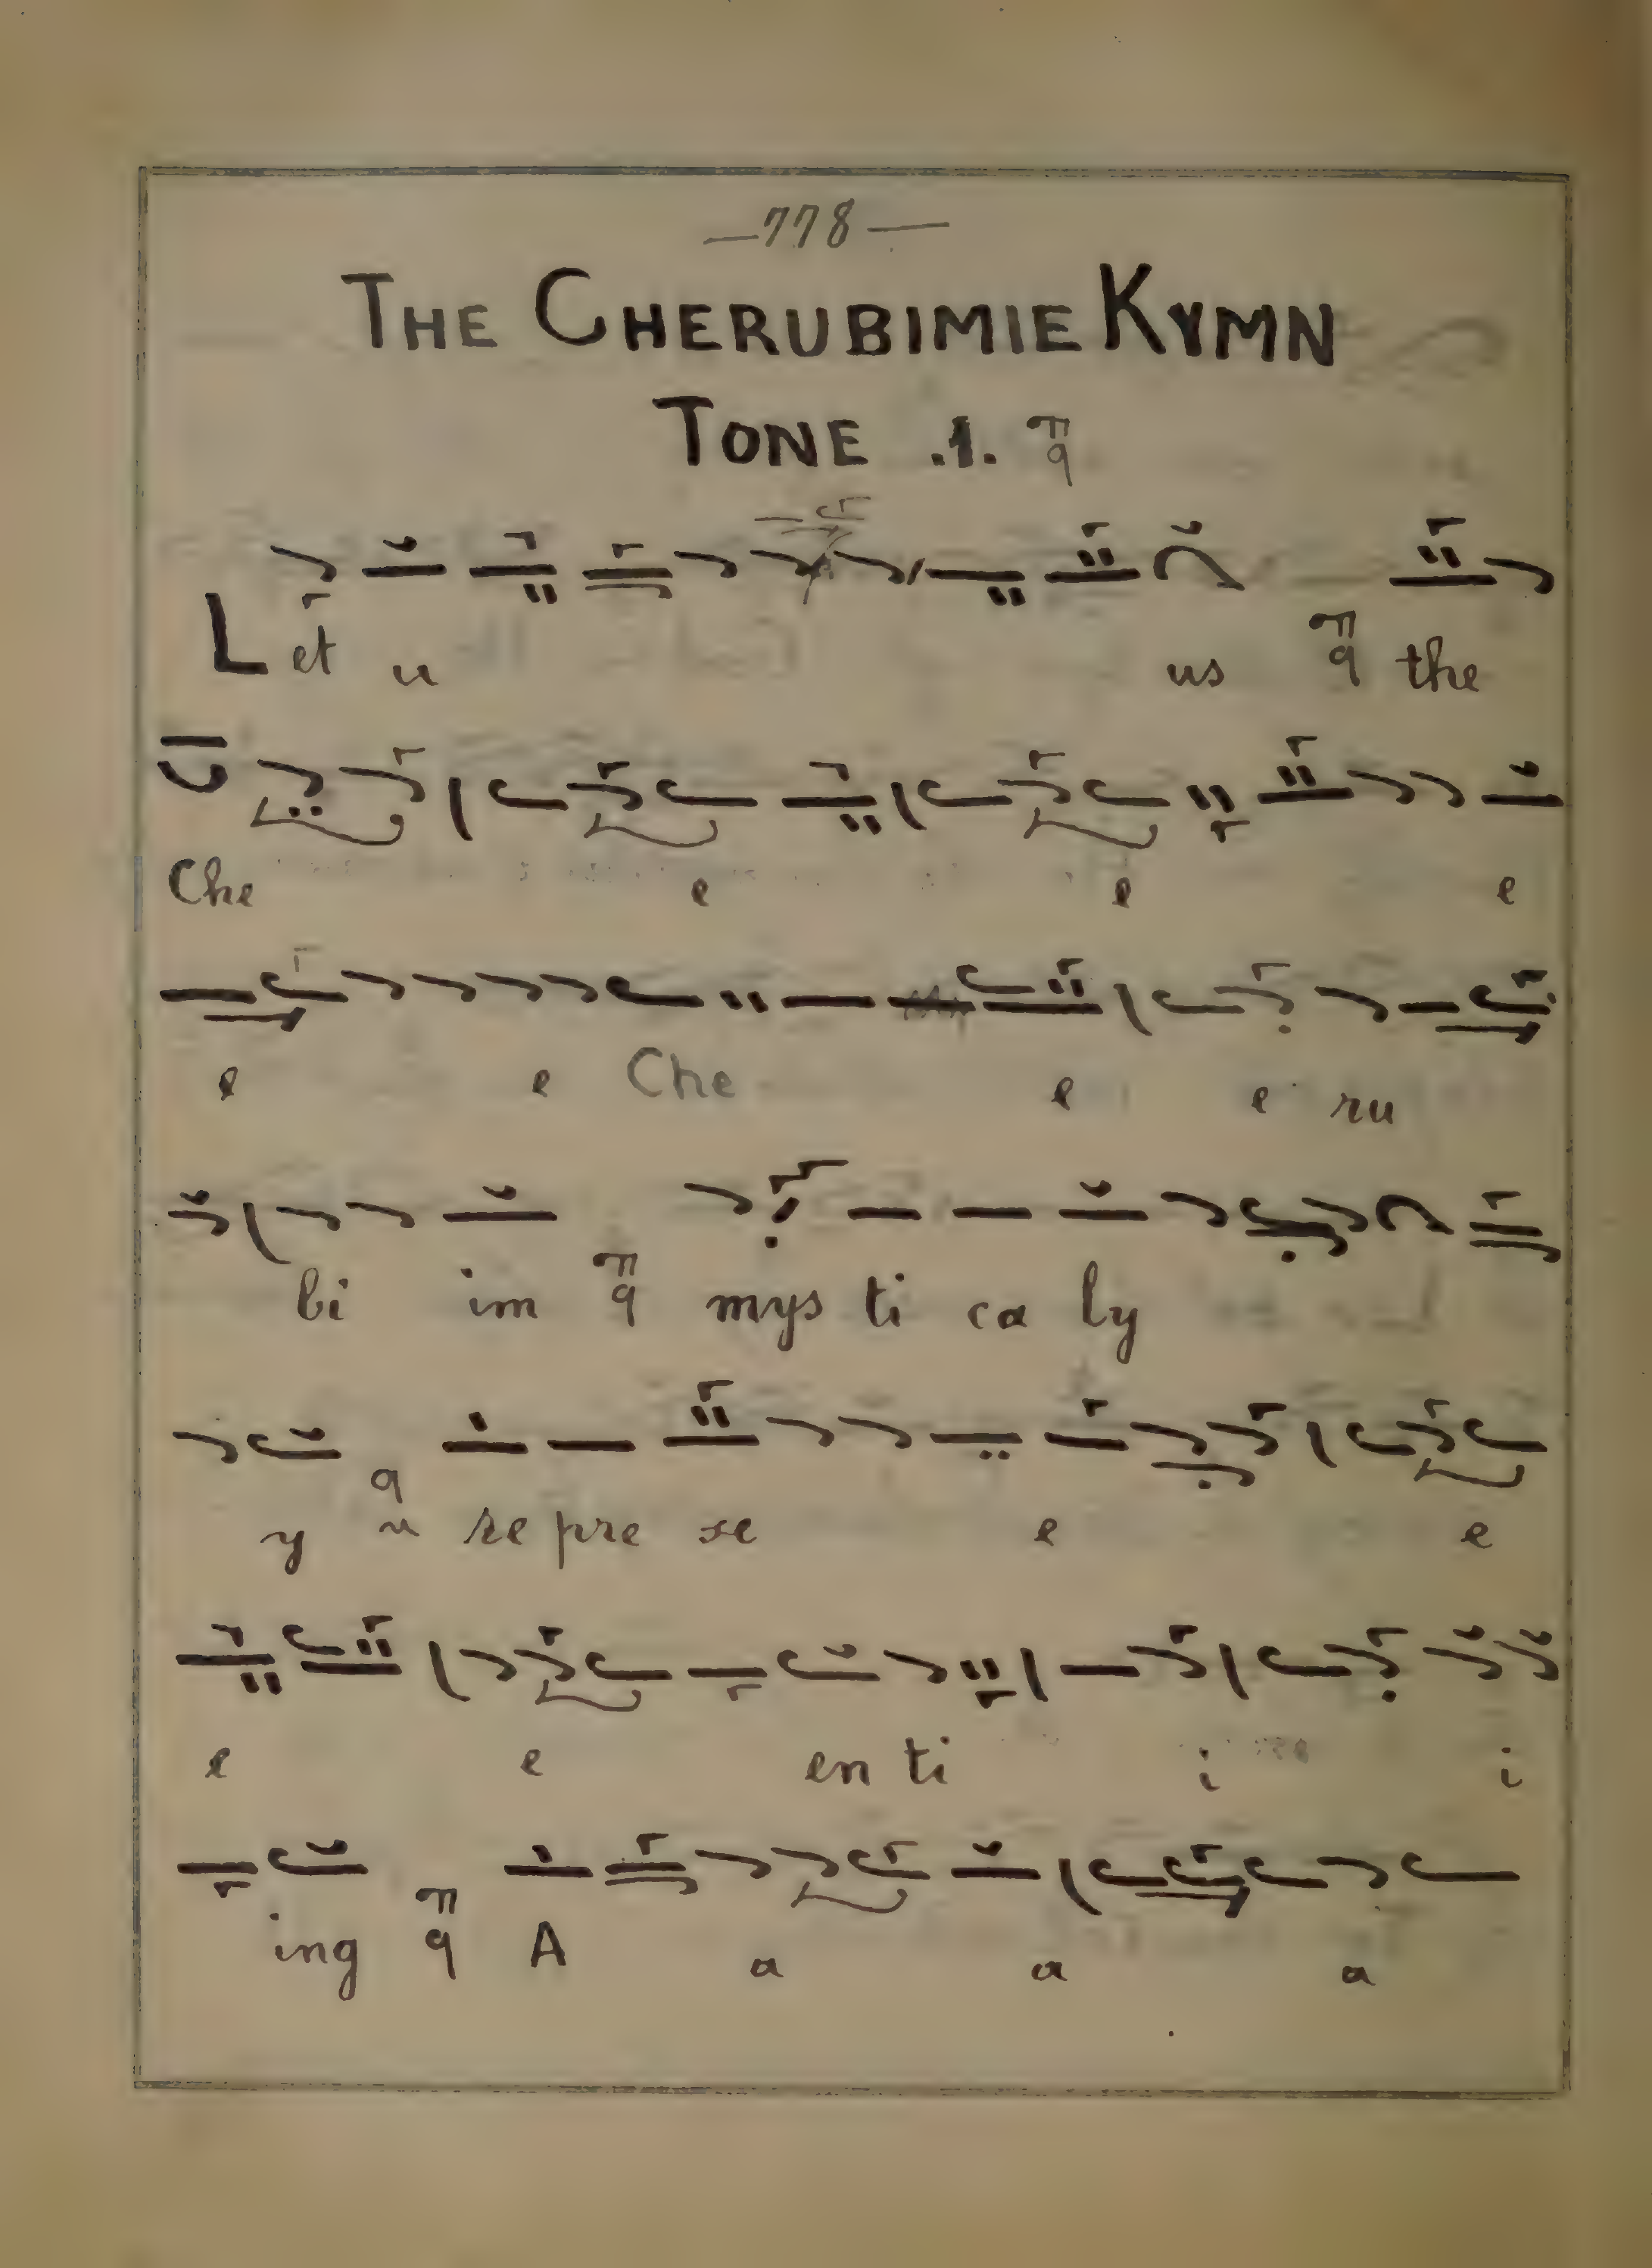 —778—
THE CHERUBIMIE KYMN
TONE .1.
Let u us the
Che e e e
e e Che e e ru
bi im mys ti ca ly
y re pre se e e
e e en ti i i
ing A a a a